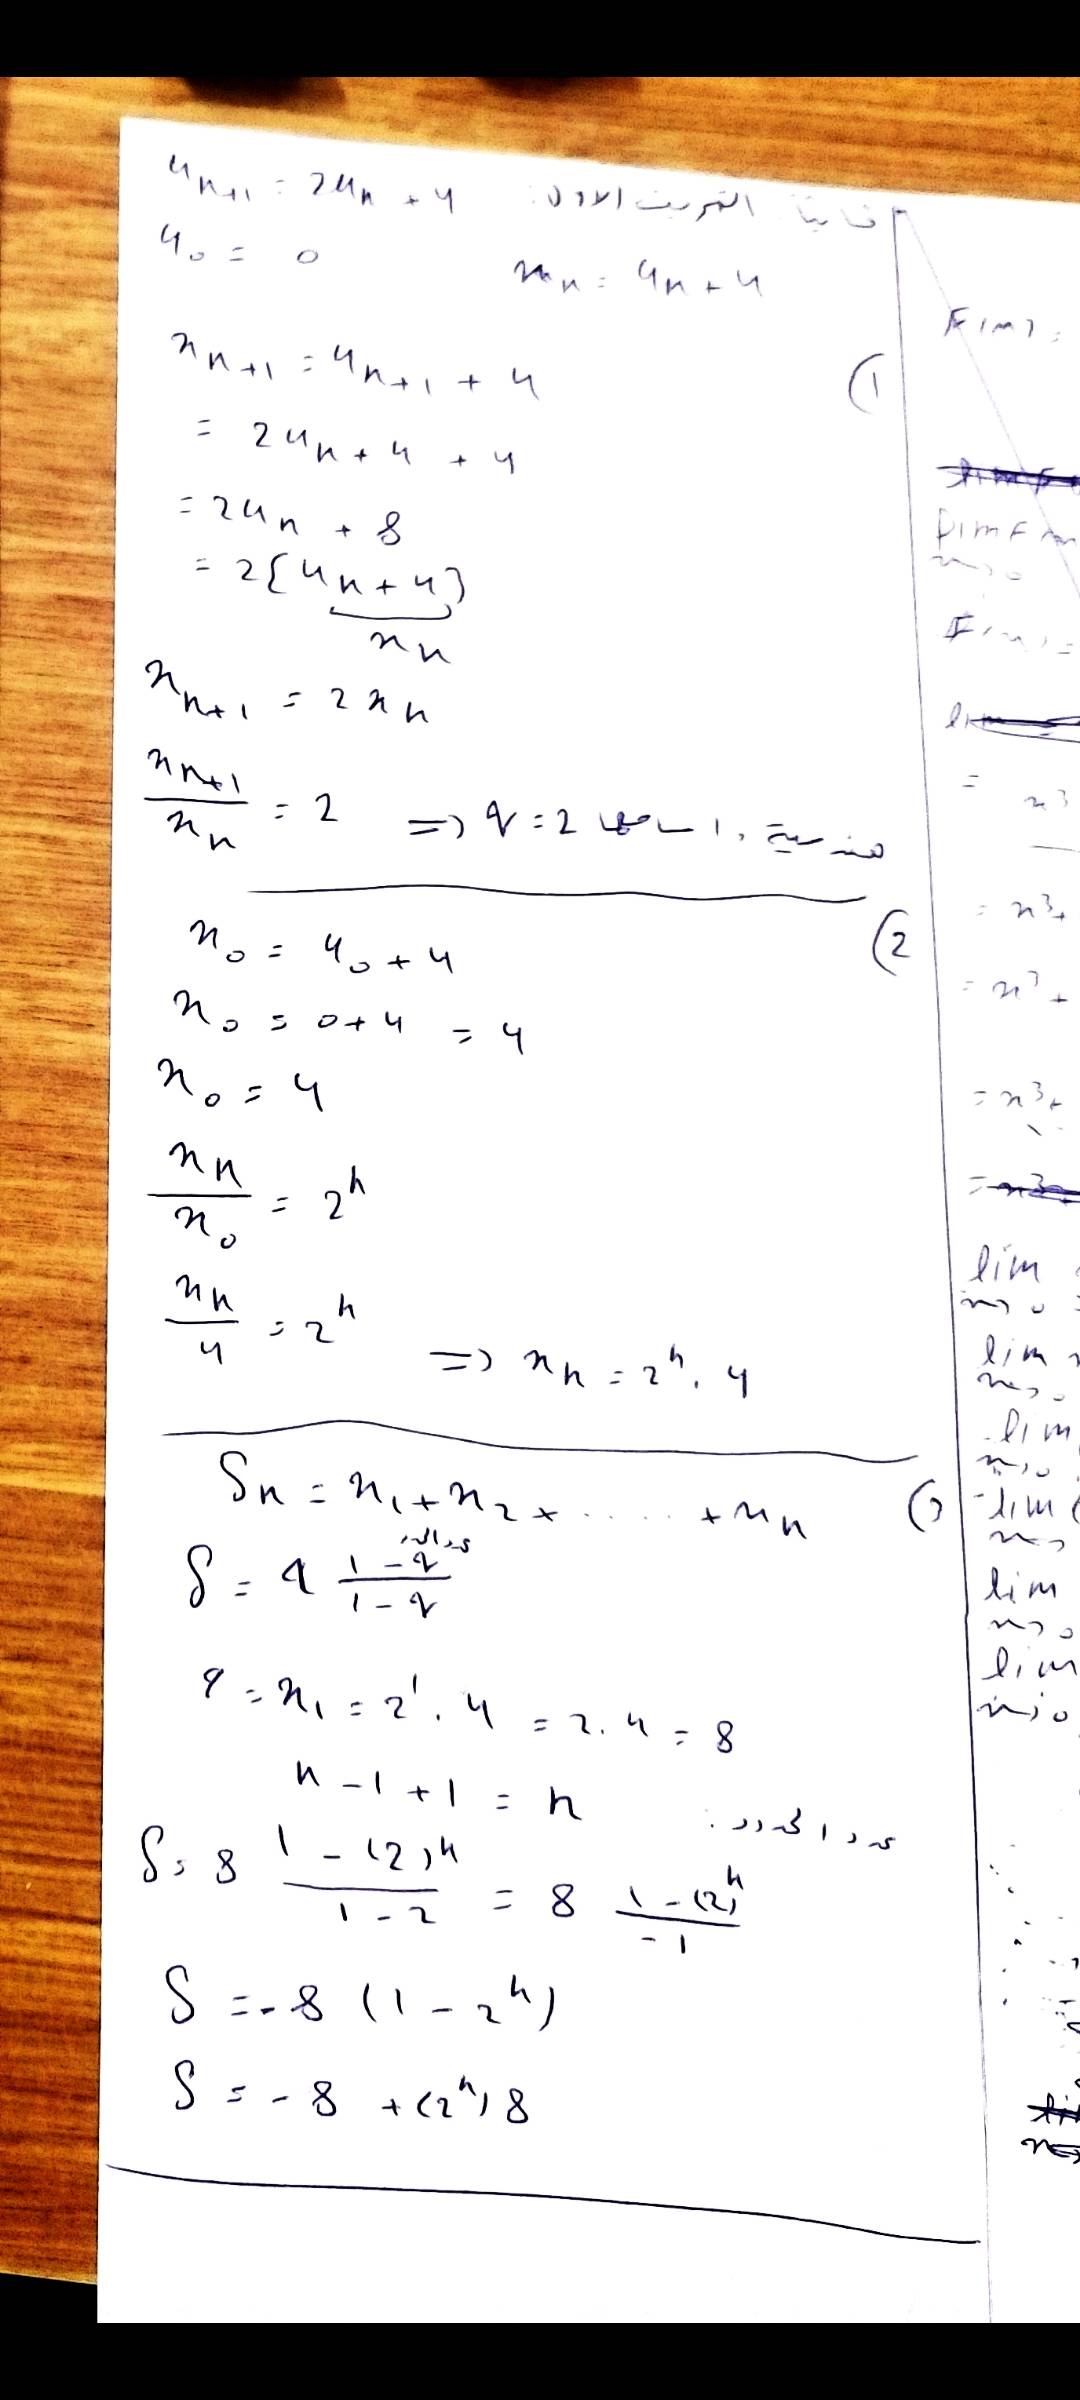 ثانيا: التمرين الاول: u_{n+1} = 2u_n + 4
u_0 = 0
x_n = u_n + 4
1)
x_{n+1} = u_{n+1} + 4
= 2u_n + 4 + 4
= 2u_n + 8
= 2[u_n + 4]
x_n
x_{n+1} = 2x_n
x_{n+1}/x_n = 2 => q = 2 هندسية، اساسها
2)
x_0 = u_0 + 4
x_0 = 0 + 4 = 4
x_0 = 4
x_n/x_0 = 2^n
x_n/4 = 2^n => x_n = 2^n . 4
3)
S_n = x_1 + x_2 + ..... + x_n
S = a (1 - q^{عدد الحدود})/(1 - q)
a = x_1 = 2^1 . 4 = 2 . 4 = 8
عدد الحدود: n - 1 + 1 = n
S = 8 (1 - (2)^n)/(1 - 2) = 8 (1 - (2)^n)/(-1)
S = -8 (1 - 2^n)
S = -8 + (2^n) 8
F(x) =
F(x) =
= x^3
= x^3 +
= x^3 +
= x^3 +
lim
x→0
lim
x→0
lim
x→0
-lim (
x→0
lim
x→0
lim
x→0